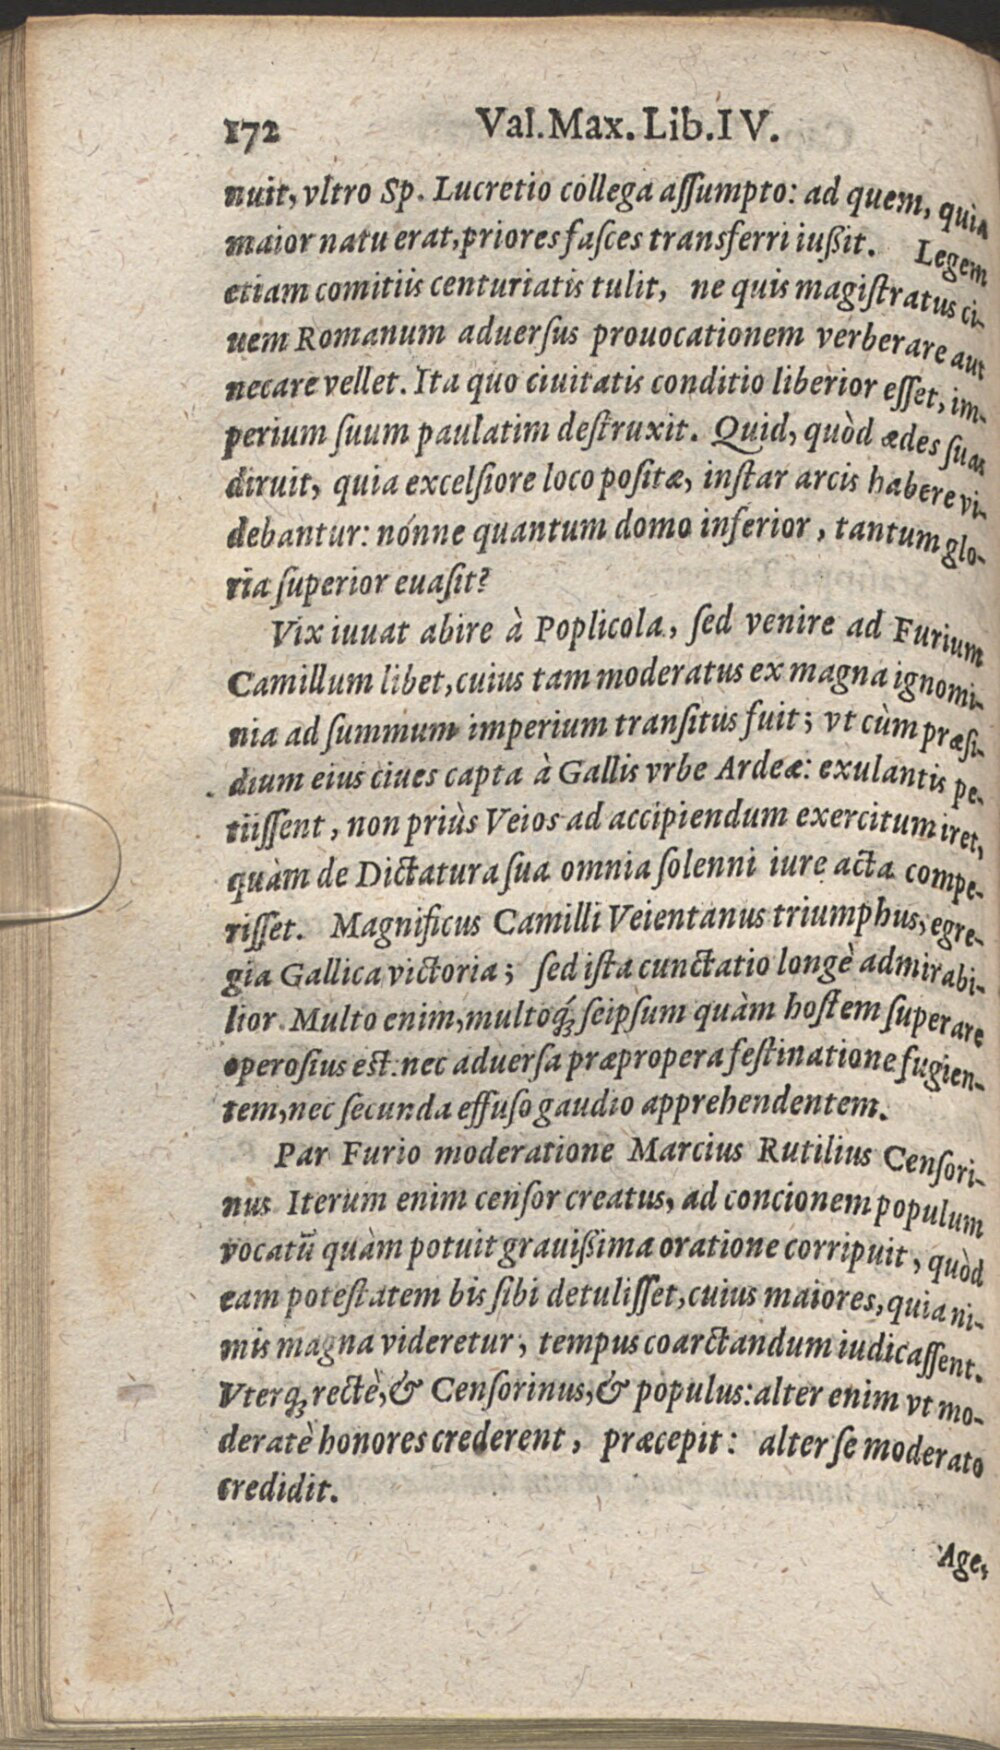 172 Val. Max. Lib. IV.
nuit, vltro Sp. Lucretio collega aſſumpto: ad quem, quia
maior natu erat, priores faſces transferri iußit. Legem
etiam comitiis centuriatis tulit, ne quis magiſtratus ci-
uem Romanum aduerſus prouocationem verberare aut
necare vellet. Ita quo ciuitatis conditio liberior eſſet, im-
perium ſuum paulatim deſtruxit. Quid, quòd ædes ſuas
diruit, quia excelſiore loco poſitæ, inſtar arcis habere vi-
debantur: nónne quantum domo inferior, tantum glo-
ria ſuperior euaſit?
Vix iuuat abire à Poplicola, ſed venire ad Furium
Camillum libet, cuius tam moderatus ex magna ignomi-
nia ad ſummum imperium tranſitus fuit; vt cùm præſi-
dium eius ciues capta à Gallis vrbe Ardeæ: exulantis pe-
tiiſſent, non priùs Veios ad accipiendum exercitum iret,
quàm de Dictatura ſua omnia ſolenni iure acta compe-
riſſet. Magnificus Camilli Veientanus triumphus, egre-
gia Gallica victoria; ſed iſta cunctatio longè admirabi-
lior. Multo enim, multoq́; ſeipſum quàm hoſtem ſuperare
operoſius eſt. nec aduerſa præpropera feſtinatione fugien-
tem, nec ſecunda effuſo gaudio apprehendentem.
Par Furio moderatione Marcius Rutilius Cenſori-
nus Iterum enim cenſor creatus, ad concionem populum
vocatū quàm potuit grauißima oratione corripuit, quòd
eam poteſtatem bis ſibi detuliſſet, cuius maiores, quia ni-
mis magna videretur, tempus coarctandum iudicaſſent.
Vterq; rectè, & Cenſorinus, & populus: alter enim vt mo-
deratè honores crederent, præcepit: alter ſe moderato
credidit.
Age,